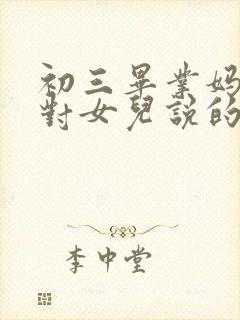 初三畢業媽
對女兒說的
李中堂